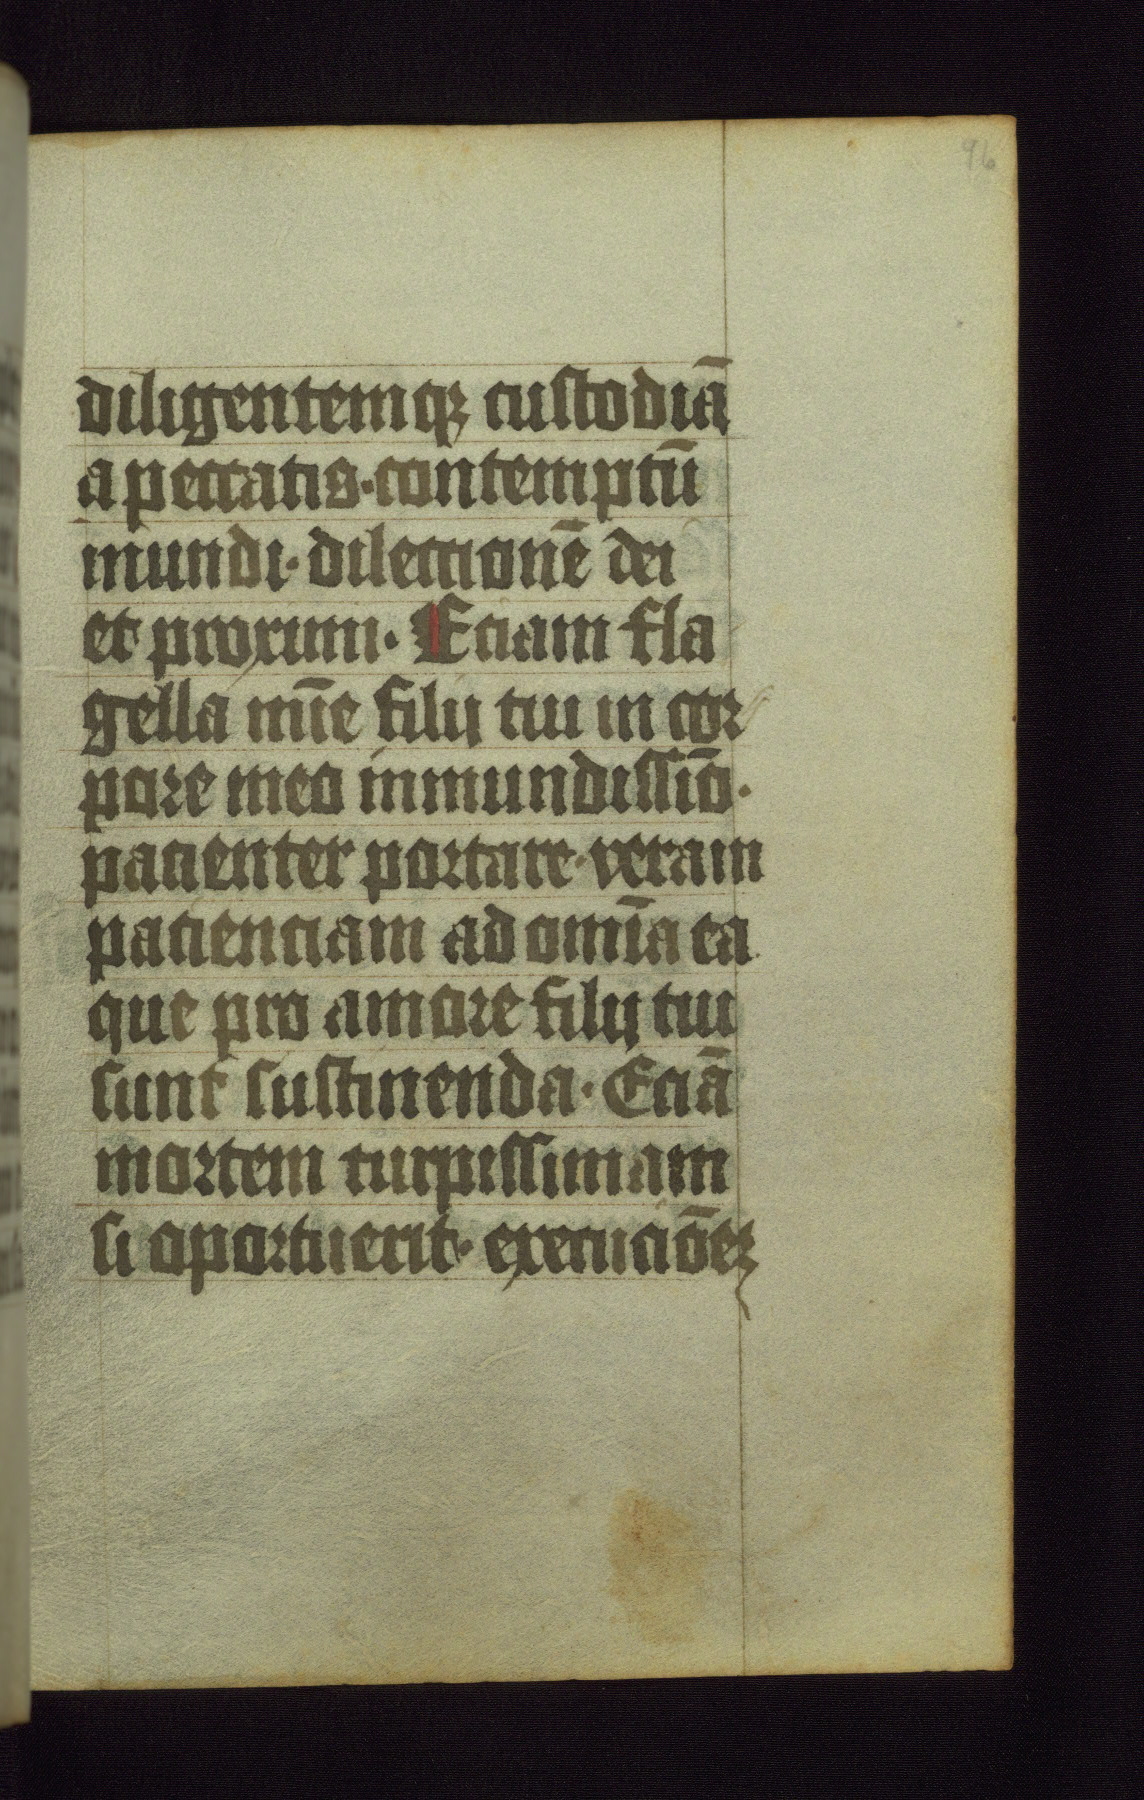 96
diligentemqꝫ custodiā
a peccatis · contemptū
mundi · dileccionē dei
et proximi · Eciam fla
gella mīe filij tui in cor
pore meo inmundissīo ·
pacienter portare · veram
pacienciam ad omīa ea
que pro amore filij tui
sunt sustinenda · Eciā
mortem turpissimam
si oportuerit ·